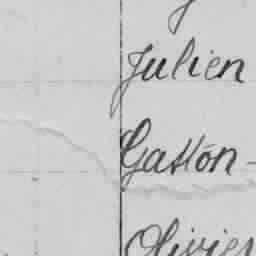 Julien
Gaston -
Olivier